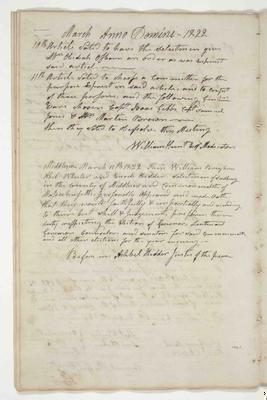 March Anno Domini - 1822
10th Article Voted to have the Selectmen give
Mr Obidah Osborn an order as was requested
said article
11th Article Voted to Choose a Committee for the
purpose Exprest in said article and to consist
of three persons and the following persons
were chosen Capt Isaac Gibbs Capt Samuel
Jones & Mr Martin Brown
then they Voted to Dissolve this Meeting
William Hunt Moderator
Middlesex March 11th 1822 then William
Abel Wheeler and Enoch Kidder Selectmen of
in the County of Middlesex and Commonwealth of
Massachusetts personally appeared and made oath
that they would faithfully & impartially and according
to their best skill & judgement, perform their
duty respecting the Election of Governor Lieutenant
Governor Counsellors and Senators for said Commonwealth
and all other elections for the year ensuing
Before me Ashbel Kidder Justice of the peace